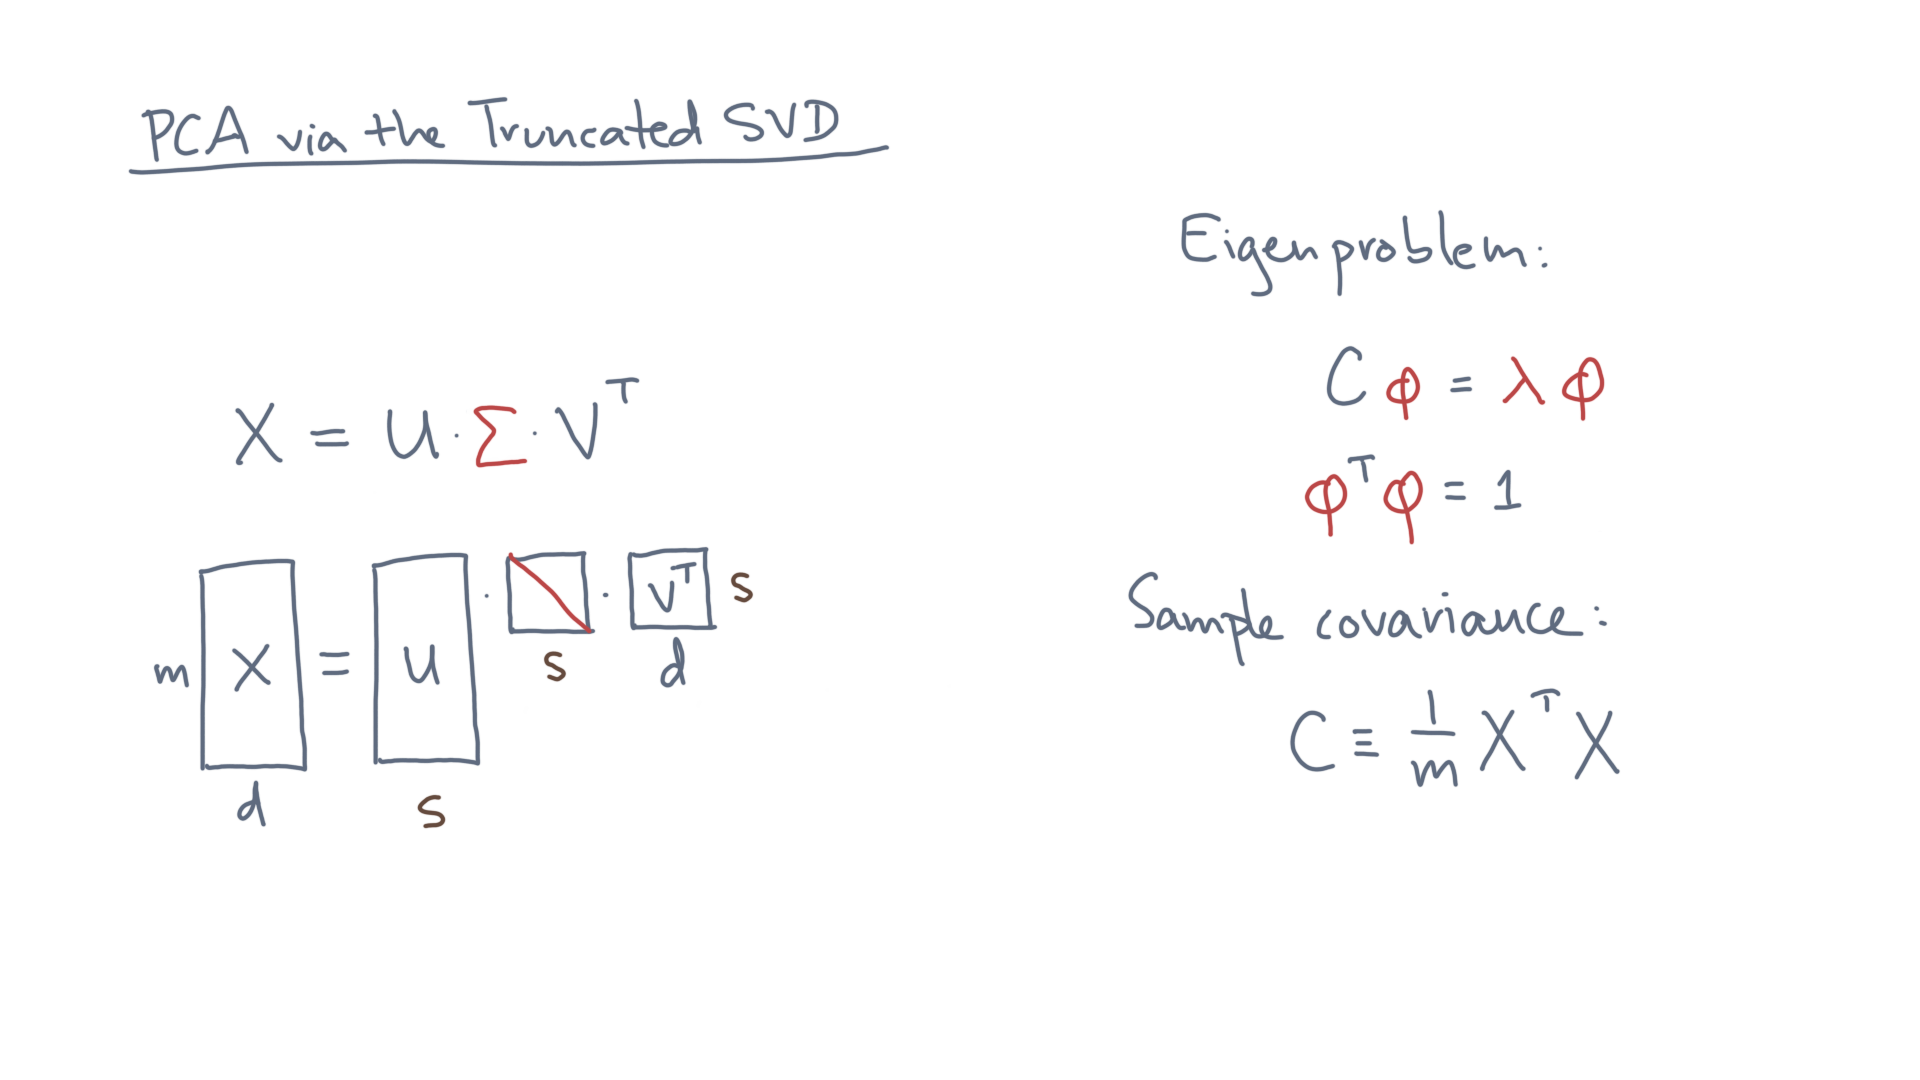 PCA via the Truncated SVD
X = U · Σ · V^T
m X = U · · V^T s
s d
d s
Eigenproblem:
C φ = λ φ
φ^T φ = 1
Sample covariance:
C ≡ 1/m X^T X